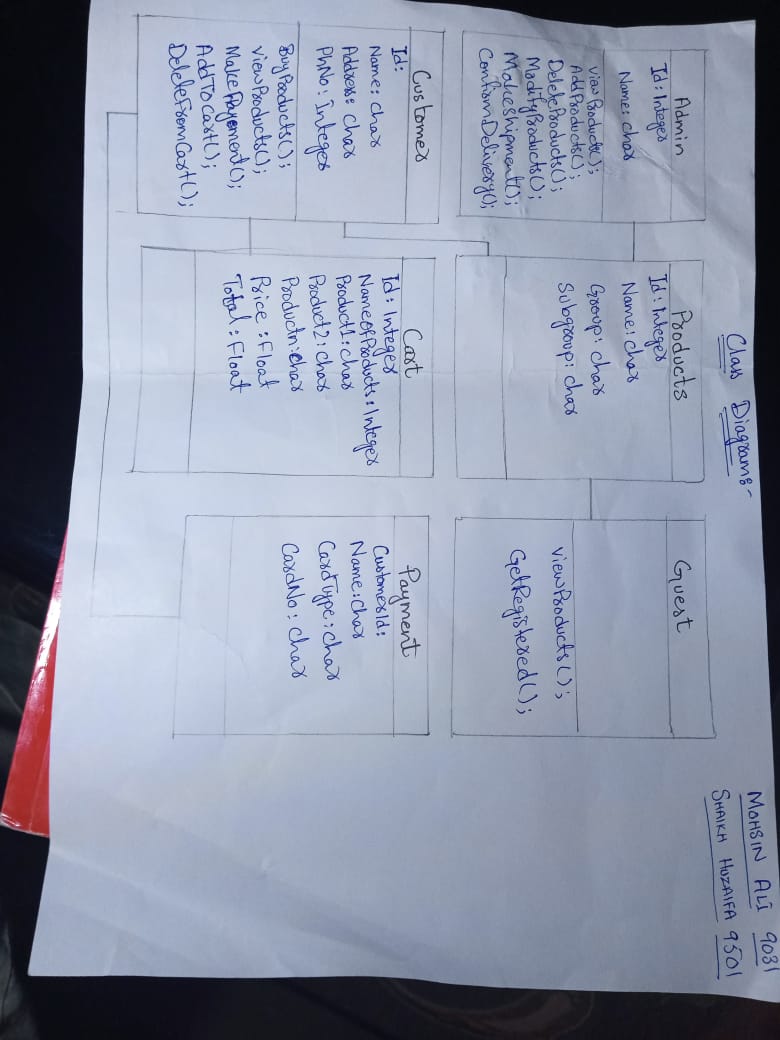 Class Diagrams-
MOHSIN ALI 9031
SHAIKH HUZAIFA 9501
Admin
Id: Integer
Name: char
viewProducts();
AddProducts();
DeleteProducts();
ModifyProducts();
Makeshipment();
ConfirmDelivery();
Products
Id: Integer
Name: char
Group: char
Subgroup: char
Guest
viewProducts();
GetRegistered();
Customer
Id:
Name: char
Address: char
PhNo: Integer
BuyProducts();
viewProducts();
Make Payement();
AddToCart();
DeleteFromCart();
Cart
Id: Integer
NameOfProducts: Integer
Product1: char
Product2: char
Productn: char
Price: Float
Total: Float
Payment
CustomerId:
Name: Char
CardType: char
CardNo: char